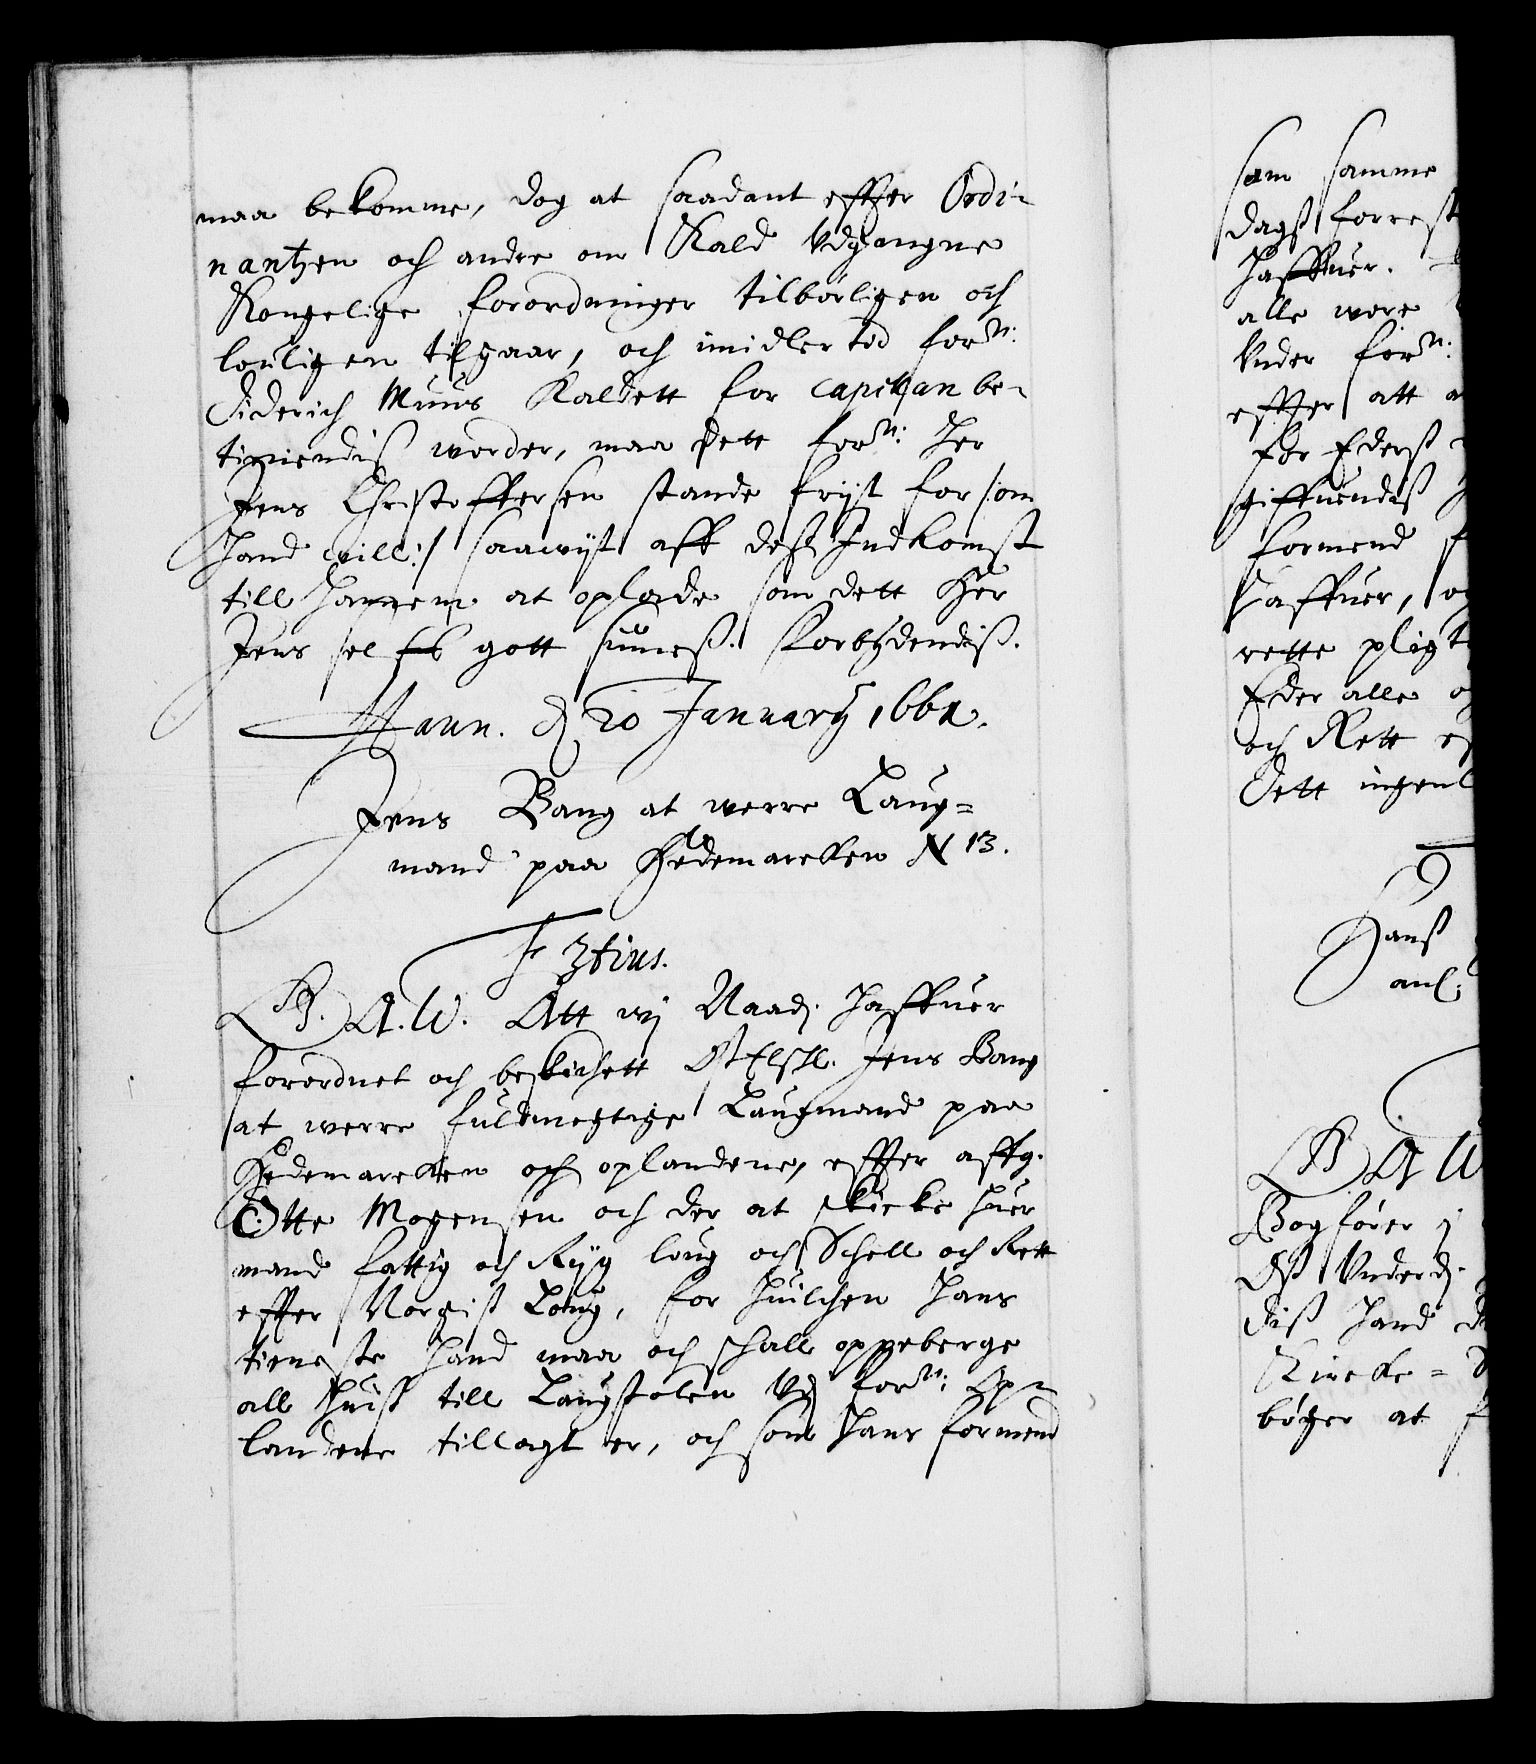 maa bekomme, dog at saadant effter Ordi-
nantzen och andre om Kald Udgangne
Kongelige forordninger tilbørligen och
louligen tilgaar, och imidler tid forn:
Diderich Muus Kaldett for Capellan be-
tieniendis worder, maa dett forn: Her
Jens Christoffersen stande frijt for som
hand will:/ saawijt aff dess Indkomst
till hannem at oplade som dett Her
Jens selff gott siunes. Forbydendiss.
Haun. d 20 January 1661.
Jens Bang at werre Laug=
mand paa Hedemarcken N 13.
F 3tius.
B. A. W. Att wj Naad. haffuer
forordnet och beskichett Oss Elskl. Jens Bang
at werre fuldmegtige Laugmand paa
Hedemarcken och oplandene, effter affg.
Otte Mogensen och der at skicke huer
mand fattig och Ryg loug och Schell och Rett
effter Norgis Loug, for huilchen hans
tieneste hand maa och schall oppeberge
all huis till Laugstolen Ud forn: Op-
landene tillagt er, och som hans formend
som samme
dags forrest
haffuer.
alle were
Under forn:
effter att
for Eders
giffuendis
formend
haffuer,
rette pligt
Eder alle
och Rett
Dett ingenl
Hans
anl:
B A W
Bogfører j
Oss Underd.
diss hand
Kircke=
bøger at